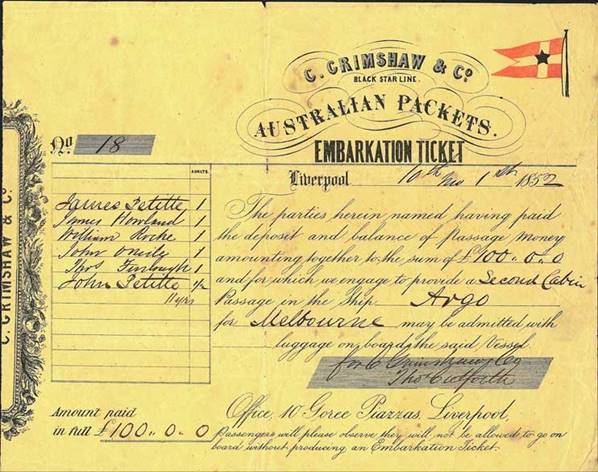 C. GRIMSHAW & Co.
BLACK STAR LINE.
AUSTRALIAN PACKETS.
EMBARKATION TICKET
No. 18
Liverpool 10th Mo 1st 1852
ADULTS.
James Fetitte 1
James Howland 1
William Roche 1
John Oneily 1
Thos 1
John Fetitte 1/2
11 yrs
The parties herein named having paid
the deposit and balance of Passage Money
amounting together to the sum of £100..0.0
and for which we engage to provide a Second Cabin
Passage in the Ship Argo
for Melbourne may be admitted with
luggage on board the said Vessel
for C Grimshaw & Co
Thos
Amount paid
in full £100..0.0
Office, 10 Goree Piazzas, Liverpool.
Passengers will please observe they will not be allowed to go on
board without producing an Embarkation Ticket.
C. GRIMSHAW & Co.